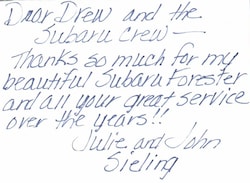 Dear Drew and the
Subaru Crew—
Thanks so much for my
beautiful Subaru Forester
and all your great service
over the years!!
Julie and John
Sieling